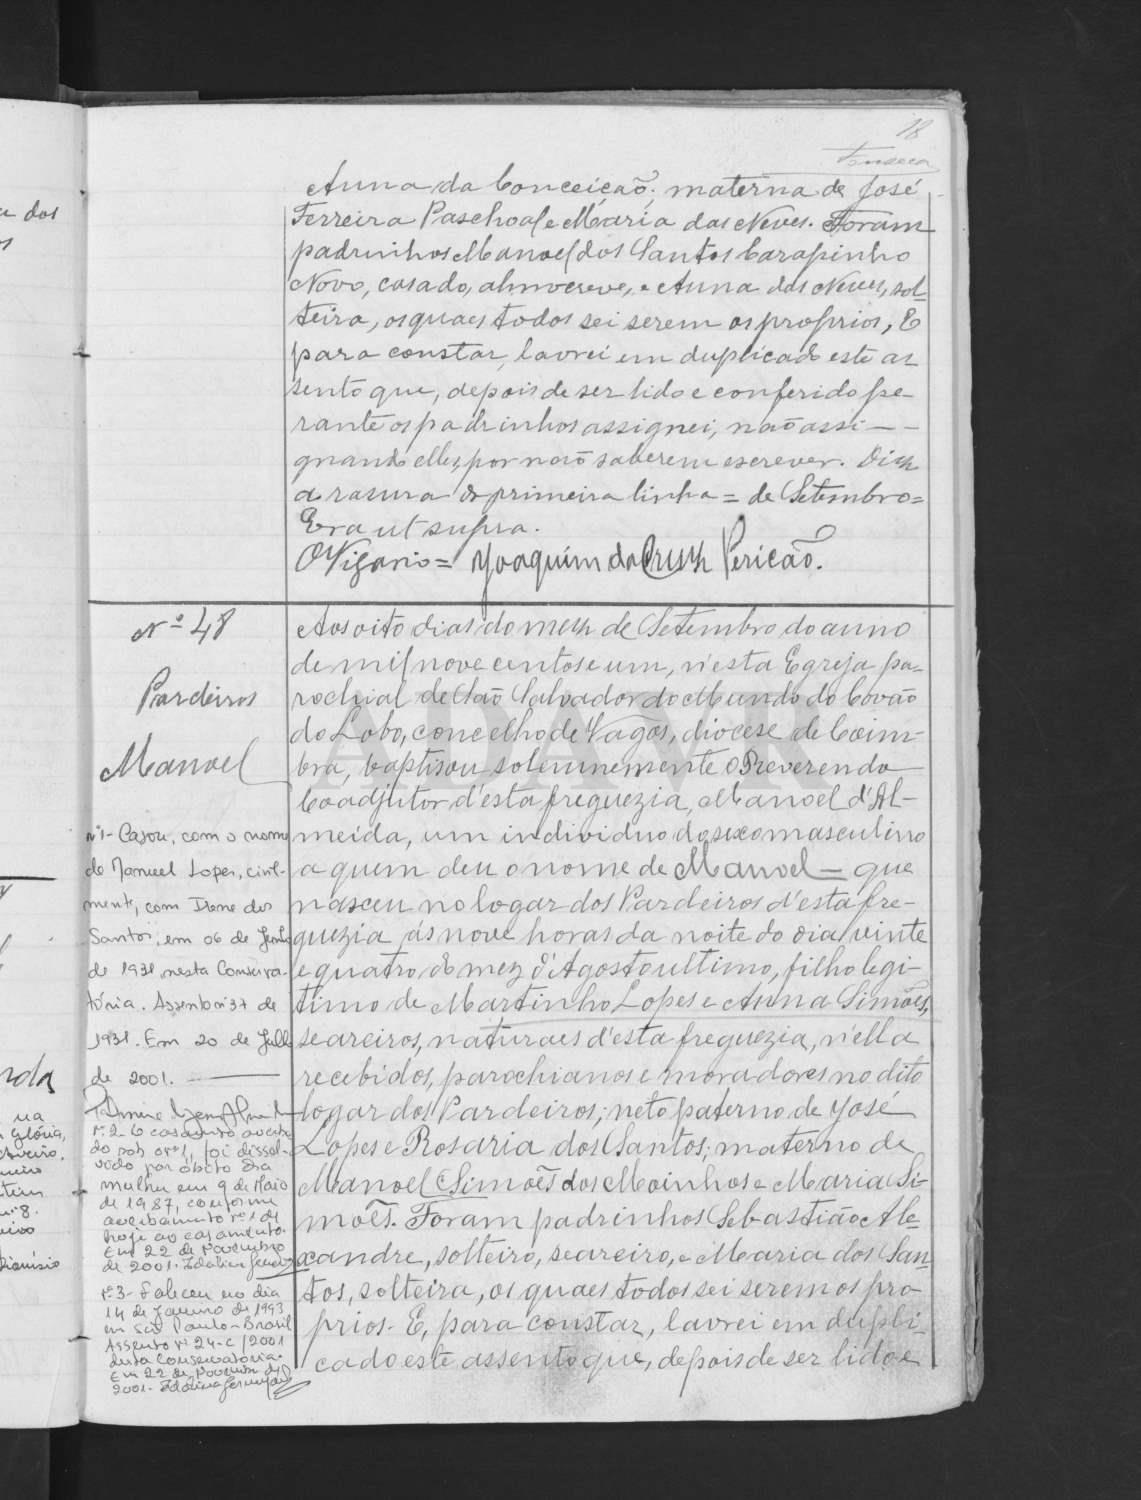 18
Fonseca
Anna da Conceição; materna de José
Ferreira Paschoal e Maria das Neves. Foram
padrinhos Manoel dos Santos Carapinho
Novo, casado, almocreve, e Anna das Neves, sol-
teira, os quaes todos sei serem os proprios, E
para constar, lavrei em duplicado este as
sento que, depois de ser lido e conferido pe-
rante os padrinhos assignei, não assi- -
gnando elles, por não saberem escrever. Diz
a rasura da primeira linha = de Setembro =
Era ut supra.
O Vigario = Joaquim da Cruz Pericão.
Nº 48
Pardeiros
Manoel
Aos oito dias do mez de Setembro do anno
de mil nove centos e um, n'esta Egreja pa-
rochial de São Salvador do Mundo do Covão
do Lobo, concelho de Vagos, diocese de Coim-
bra, baptisou solemnemente o Reverendo
Coadjutor d'esta freguezia, Manoel d'Al-
meida, um individuo do sexo masculino
a quem deu o nome de Manoel - que
nasceu no logar dos Pardeiros d'esta fre-
guezia ás nove horas da noite do dia vinte
e quatro do mez d'Agosto ultimo, filho legi-
timo de Martinho Lopes e Anna Simões,
seareiros, naturaes d'esta freguezia, n'ella
recebidos, parochianos e moradores no dito
logar dos Pardeiros; neto paterno de José
Lopes e Rosaria dos Santos; materno de
Manoel Simões dos Moinhos e Maria Si-
mões. Foram padrinhos Sebastião Ale-
xandre, solteiro, seareiro, e Maria dos San-
tos, solteira, os quaes todos sei serem os pro
prios. E, para constar, lavrei em dupli-
cado este assento que, depois de ser lido e
nº1- Casou, com o nome
de Manuel Lopes, civil-
mente, com Irene dos
Santos, em 06 de Junho
de 1931, nesta Conserva-
tória. Assento nº 37 de
1931. Em 20 de Julho
de 2001.
nº 2- O casamento averba
do sob o nº 1, foi dissol-
vido por óbito da
mulher em 9 de Maio
de 1987, conforme
averbamento nº 1 de
hoje ao casamento.
Em 22 de Novembro
de 2001.
nº 3- Faleceu no dia
14 de Janeiro de 1993
em São Paulo - Brasil
Assento nº 24-C/2001
desta Conservatória.
Em 22 de Novembro de
2001.
ADAVR